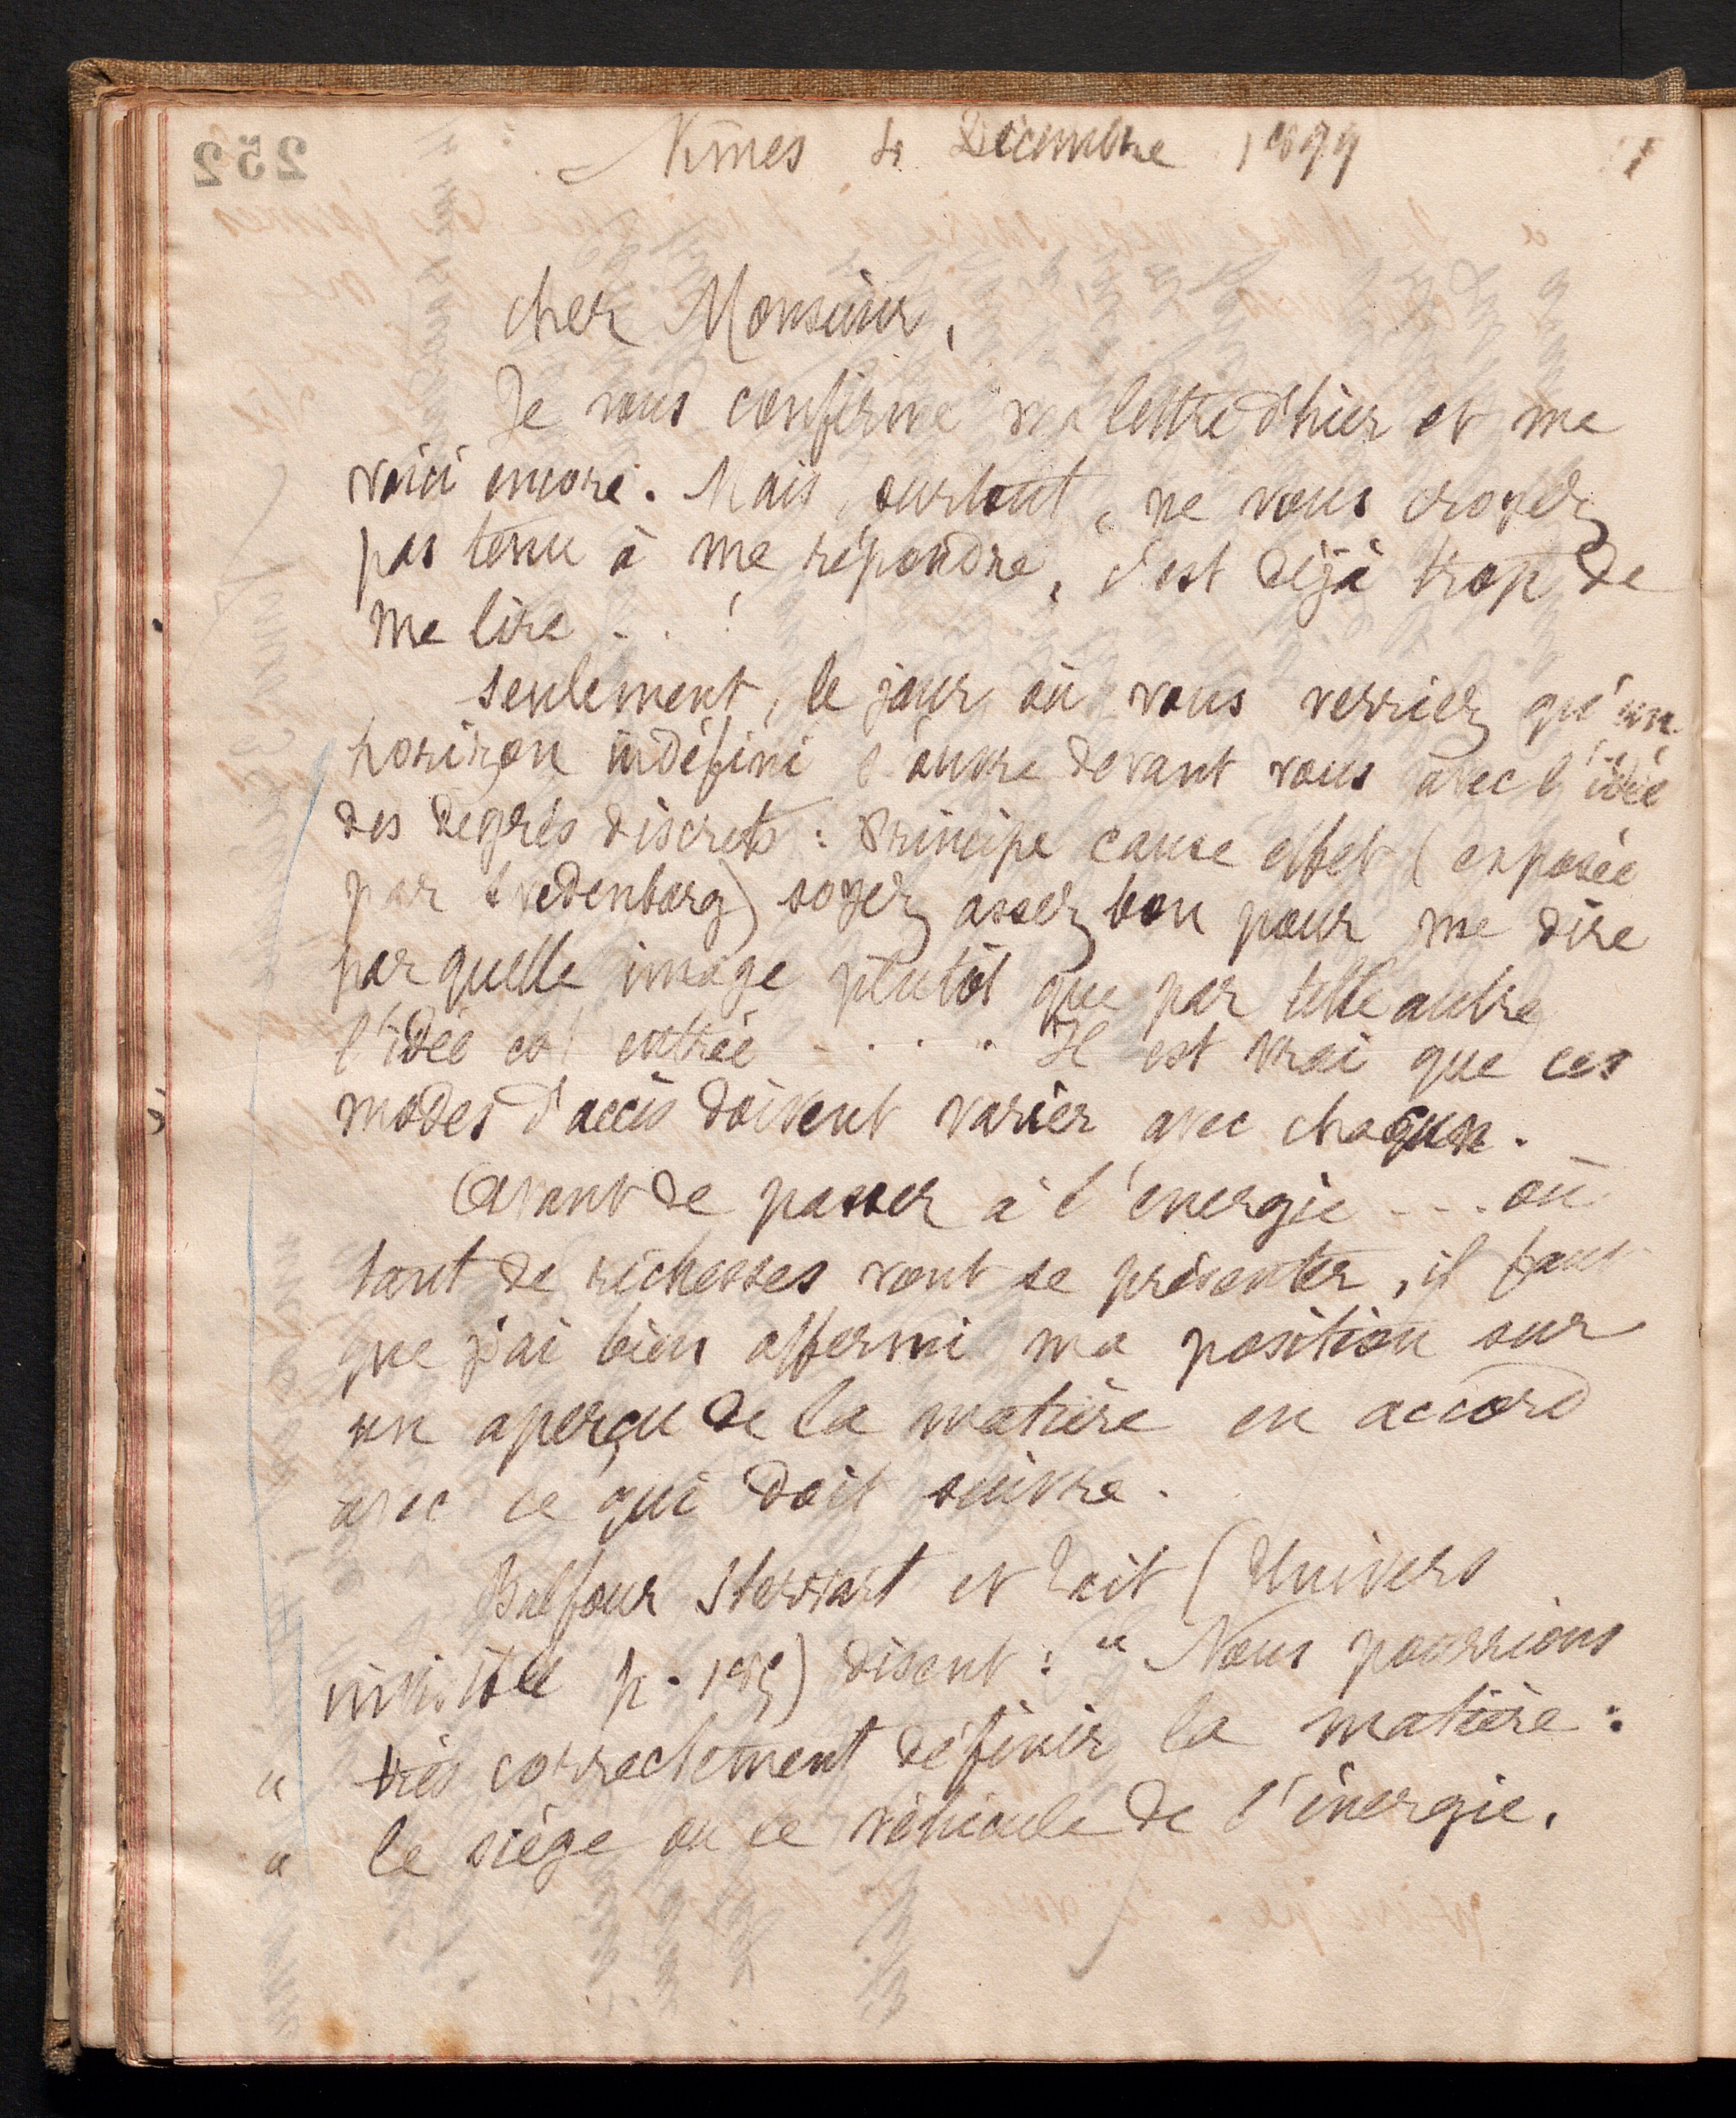 Nîmes 4 Décembre 1899
1
cher Monsieur,
Je vous confirme ma lettre d'hier et me
voici encore. Mais, surtout, ne vous croyez
pas tenu à me répondre, c'est déjà trop de
me lire ...!
Seulement, le jour où vous verriez qu'un
horizon indéfini s'ouvre devant vous avec l'idée
des degrés discrets : Principe cause effet (exposée
par Swedenborg) soyez assez bon pour me dire
par quelle image plutôt que par telle autre
l'idée est entrée ..... Il est vrai que ces
modes d'accès doivent varier avec chaqun.
Avant de passer à l'énergie ... où
tant de richesses vont se présenter, il faut
que j'ai bien affermi ma position sur
un aperçu de la matière en accord
avec ce qui doit suivre.
Balfour Stewart et Tait (Univers
invisible p.) disent : " Nous pourrions
" très correctement définir la matière :
" le siège ou le véhicule de l'énergie.